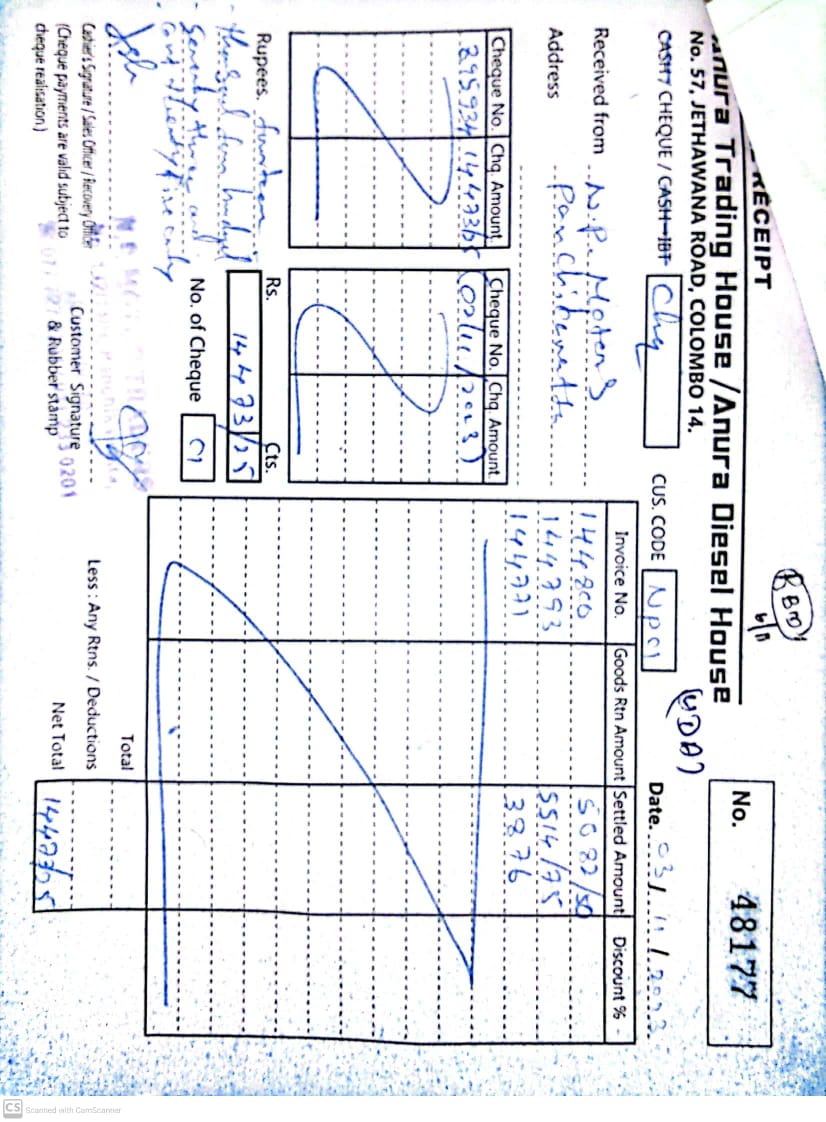 RECEIPT
Anura Trading House / Anura Diesel House
No. 57, JETHAWANA ROAD, COLOMBO 14.
No. 48177
CASH / CHEQUE / CASH-IBT Chq
CUS. CODE NP01
Date. 03 / 11 / 2023
Received from N.P. Motors
Address
Cheque No. Chq. Amount Cheque No. Chq. Amount
295934 14473/25 (02/11/2023)
Invoice No. Goods Rtn Amount Settled Amount Discount %
144800 5082/50
144793 5514/75
144771 3876
Rupees. fourteen
thousand four hundred
seventy three and
cents twenty five only
Rs. Cts.
14473/25
No. of Cheque 01
Total
Less : Any Rtns. / Deductions
Net Total 14473/25
Cashier's Signature / Sales Officer / Recovery Officer
(Cheque payments are valid subject to
cheque realisation)
Customer Signature
& Rubber stamp
CS Scanned with CamScanner